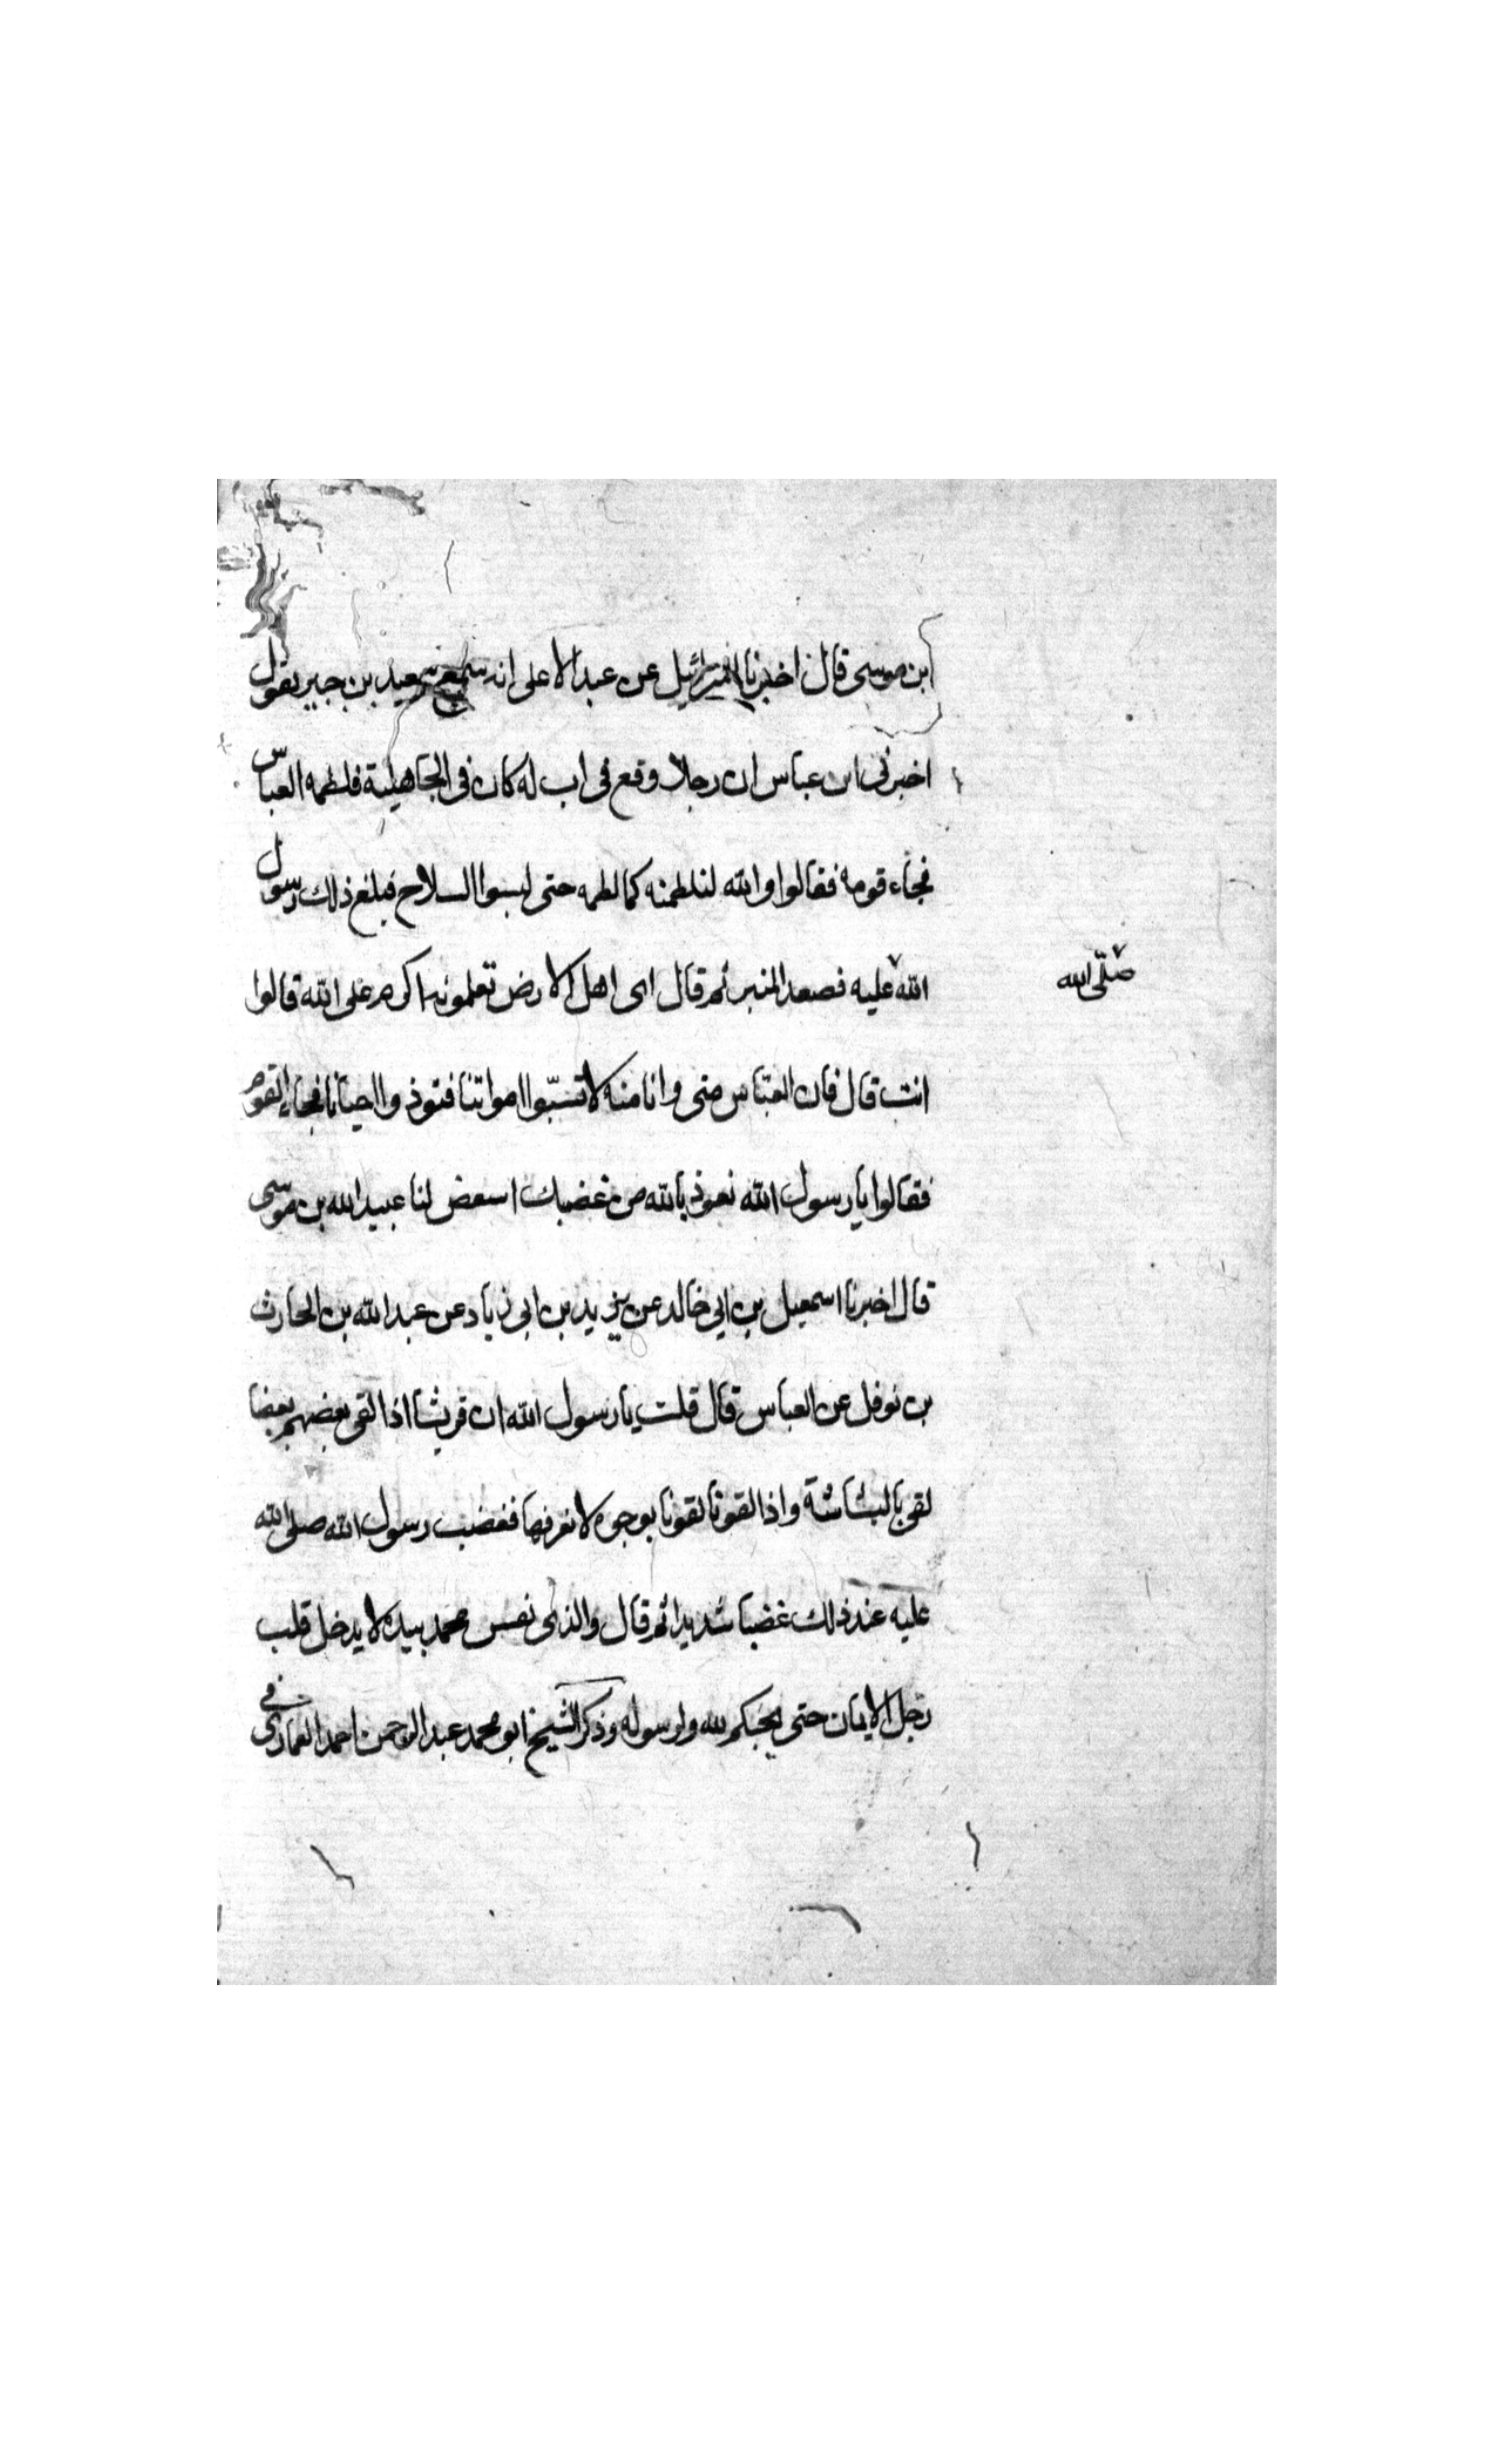 ابن موسى قال اخبرنا اسرائيل عن عبد الاعلى انه سمع سعيد بن جبير يقول
اخبرنى ابن عباس ان رجلا وقع فى اب له كان فى الجاهلية فلطمه العباس
فجاء قومه فقالوا والله لنلطمنه كما لطمه حتى لبسوا السلاح فبلغ ذلك رسول
الله عليه فصعد المنبر ثم قال اى اهل الارض تعلمونه اكرم على الله قالوا
صلّى الله
انت قال فان العبّاس منى وانا منه لا تسبّوا امواتنا فتوذوا احيانا فجاء القوم
فقالوا يا رسول الله نعوذ بالله من غضبك اسعض لنا عبيد الله بن موسى
قال اخبرنا اسمعيل بن ابي خالد عن يزيد بن ابى زياد عن عبد الله بن الحارث
بن نوفل عن العباس قال قلت يا رسول الله ان قريشا اذا لقى بعضهم بعضا
لقى بالبشاشة واذا لقونا لقونا بوجوه لا نعرفها فغضب رسول الله صلى الله
عليه عند ذلك غضبا شديدا ثم قال والذى نفس محمد بيده لا يدخل قلب
رجل الايمان حتى يحبكم لله ولرسوله وذكر الشيخ ابو محمد عبد الرحمن احمد العمارى فى